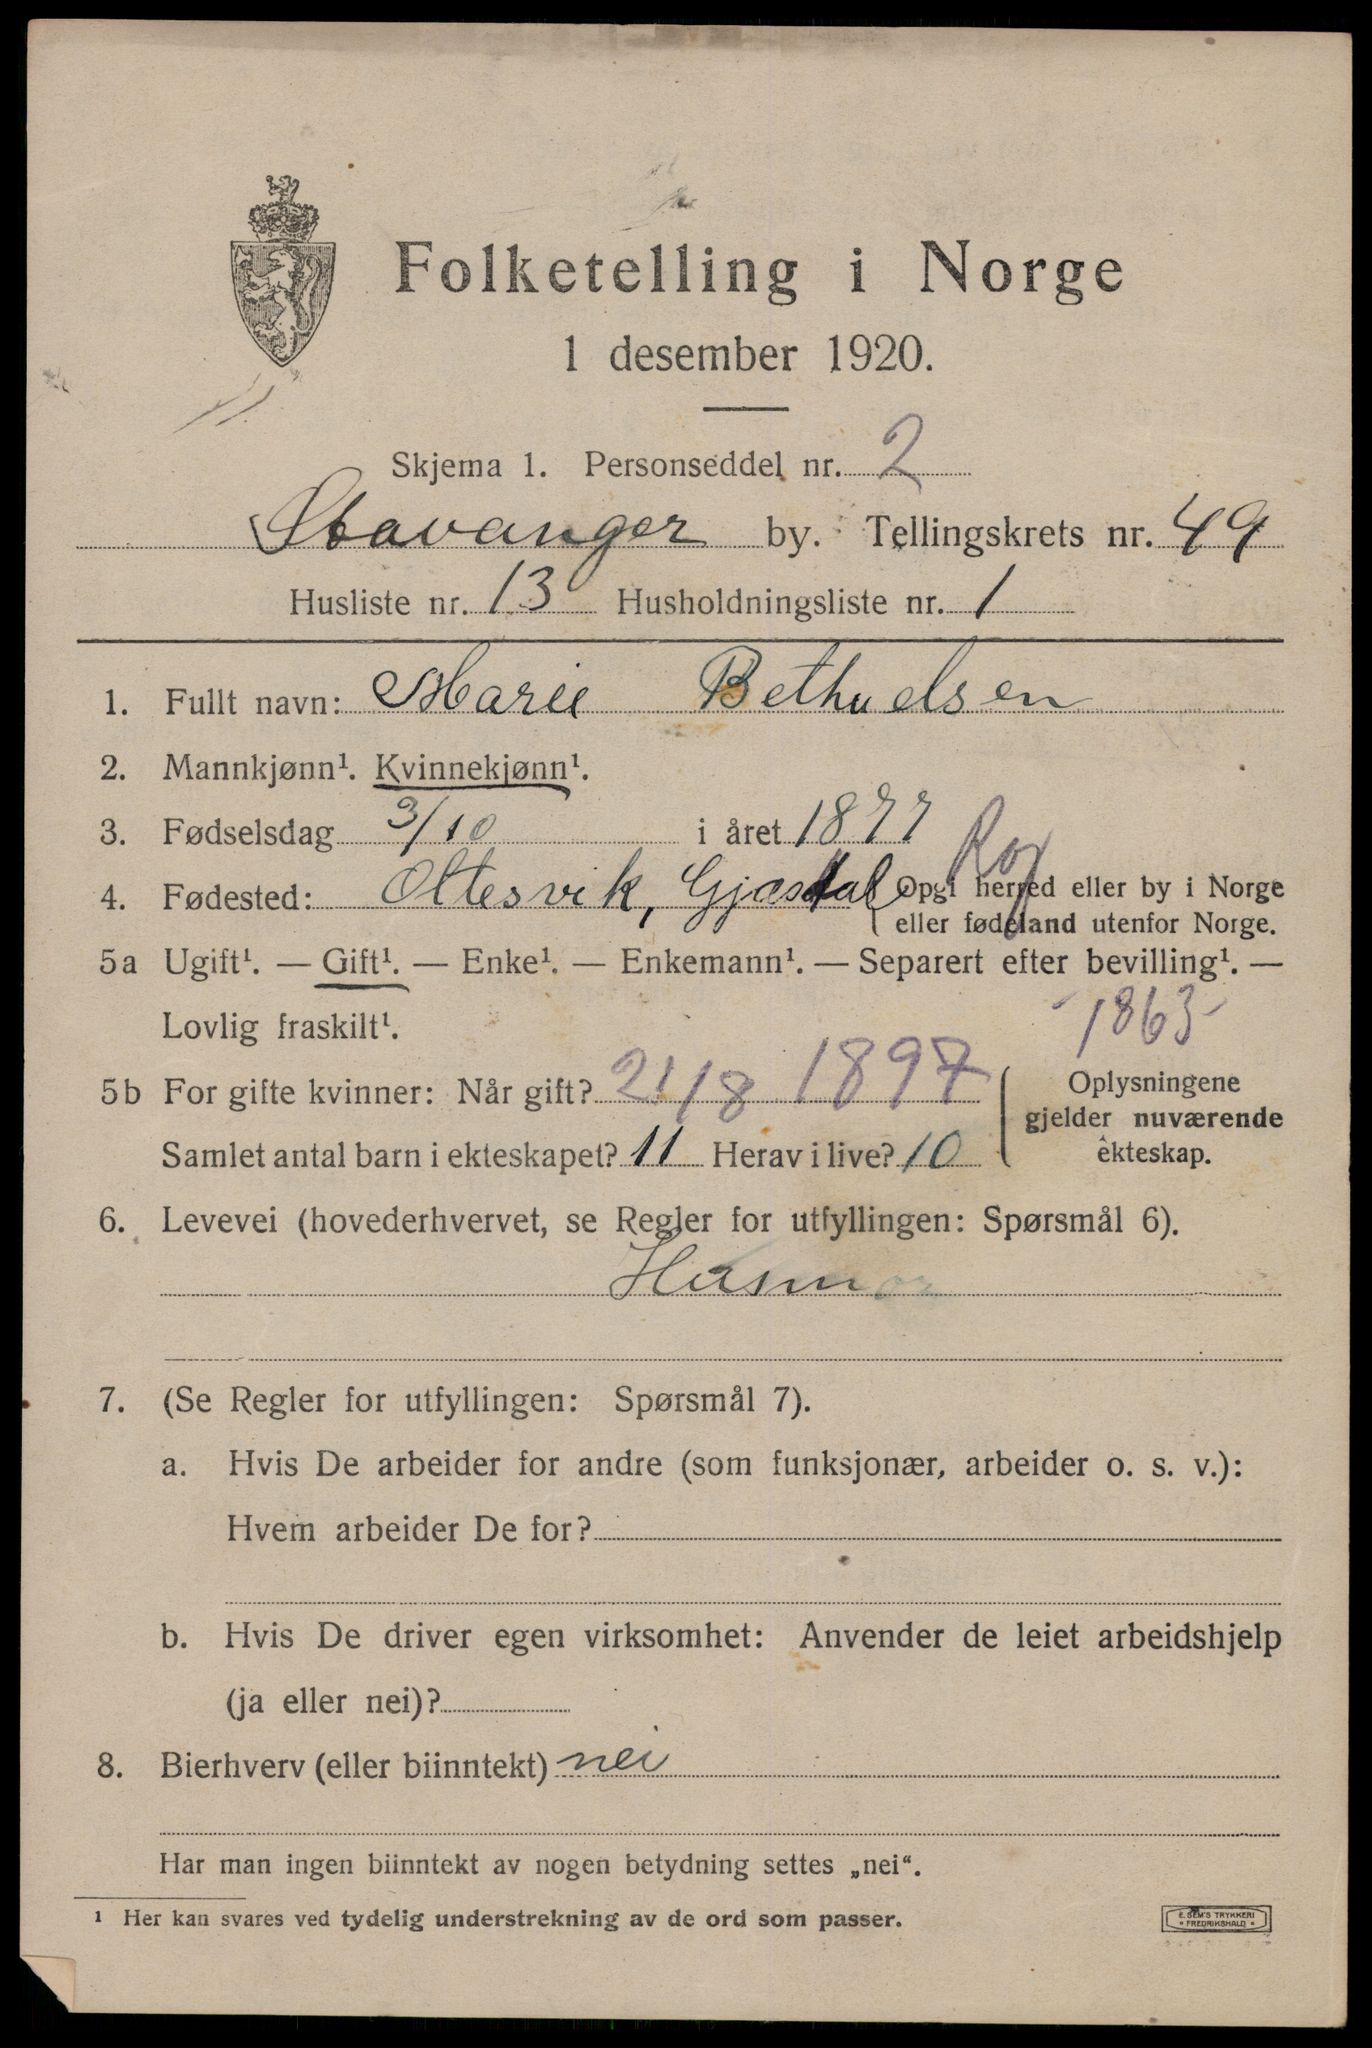 Folketelling i Norge
1 desember 1920.
Skjema 1. Personseddel nr. 2
Stavanger by. Tellingskrets nr. 49
Husliste nr. 13 Husholdningsliste nr. 1
1. Fullt navn: Marie Bethuelsen
2. Mannkjønn¹. Kvinnekjønn¹.
3. Fødselsdag 3/10 i året 1877
Rog
4. Fødested: Oltesvik, Gjæsdal Opgi herred eller by i Norge
eller fødeland utenfor Norge.
5a Ugift¹. — Gift¹. — Enke¹. — Enkemann¹. — Separert efter bevilling¹. —
Lovlig fraskilt¹.
-1863-
5b For gifte kvinner: Når gift? 21/8 1897
Oplysningene
gjelder nuværende
ekteskap.
Samlet antal barn i ekteskapet? 11 Herav i live? 10
6. Levevei (hovederhvervet, se Regler for utfyllingen: Spørsmål 6).
Husmor
7. (Se Regler for utfyllingen: Spørsmål 7).
a. Hvis De arbeider for andre (som funksjonær, arbeider o. s. v.):
Hvem arbeider De for?
b. Hvis De driver egen virksomhet: Anvender de leiet arbeidshjelp
(ja eller nei)?
8. Bierhverv (eller biinntekt) nei
Har man ingen biinntekt av nogen betydning settes „nei“.
¹ Her kan svares ved tydelig understrekning av de ord som passer.
E. SEM'S TRYKKERI
• FREDRIKSHALD •